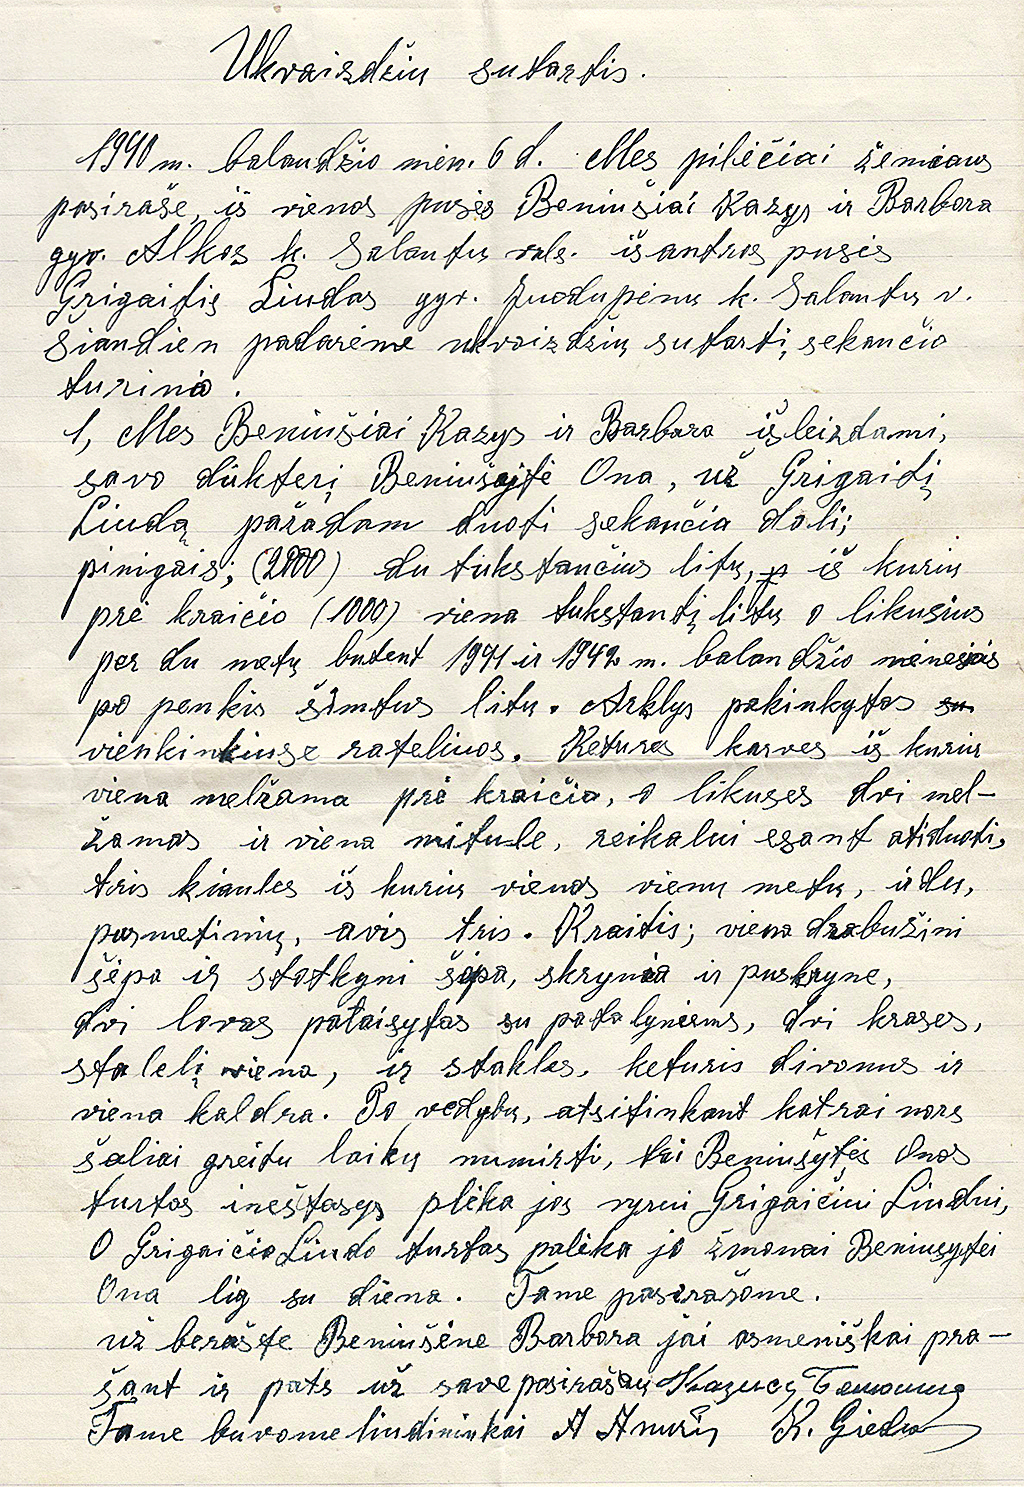 Ukvaizdžių sutartis.
1940 m. balandžio mėn. 6 d. Mes piliečiai žemiaus
pasirašę, iš vienos pusės Beniušiai Kazys ir Barbora
gyv. Alkos k. Salantų vals. iš antros pusės
Grigaitis Liudas gyv. Juodupėnų k. Salantų v.
šiandien padarėme ukvaizdžių sutartį, sekančio
turinio.
1, Mes Beniušiai Kazys ir Barbora išleizdami,
savo dukterį Beniušaitė Ona, už Grigaitį
Liudą pažadam duoti sekančia dali;
pinigais; (2000) du tukstančius litų, iš kurių
prė kraičio (1000) viena tukstantį litų o likusius
per du metų butent 1941 ir 1942 m. balandžio mėnesiais
po penkis šimtus litų. Arklys pakinkytas su
vienkinkiuse rateliuos. Keturęs karves iš kurių
viena melžama prė kraičio, o likuses dvi mel-
žamas ir viena mitule, reikalui esant atiduoti,
tris kiaules iš kurių vienos vienų metų, ir dų,
pusmetinių, avis tris. Kraitis; viena drabužini
šėpa ir stotkyni šėpa, skrynia ir puskryne,
dvi lovas pataisytas su patalynėms, dvi krases,
stalelį viena, ir stakles, keturis divonus ir
viena kaldra. Po vedybų, atsitinkant katrai nors
šaliai greitu laikų numirti, tai Beniušytės Onos
turtas ineštasys plėka jos vyrui Grigaičiui Liudui,
O Grigaičio Liudo turtas palėka jo žmonai Beniusytei
Ona lig su diena. Tame pasirašome.
už beraštę Beniušėne Barbora jai asmeniškai pra-
šant ir pats už save pasirašau
Tame buvome liudininkai A K. Giedra